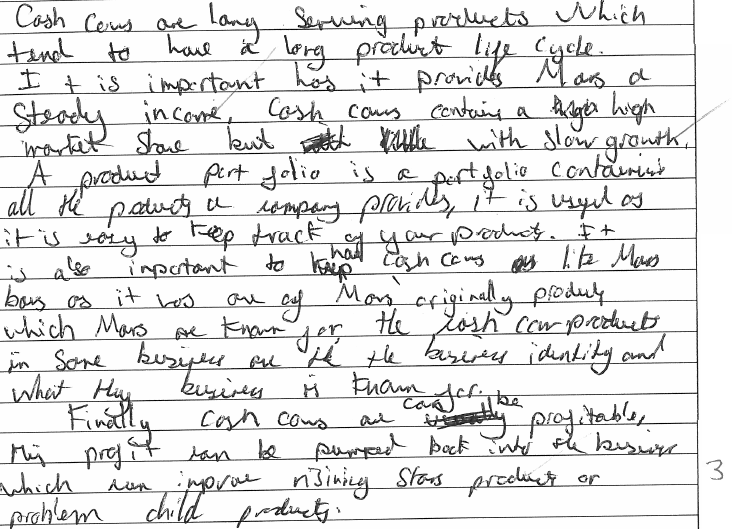 Cash Cows are long serving products which
tend to have a long product life cycle.
It is important has it provides Mars a
steady income, Cash cows contains a high
market share but with slow growth.
A product portfolio is a portfolio containing
all the products a company provides, it is useful as
it is easy to keep track of your product. It
is also important to had cash cows as like Mars
bars as it was one of Mars' originally products
which Mars are known for, the cash cow products
in some business are the the business identity and
what they business is known for.
Finally cash cows are can be profitable,
this profit can be pumped back into the business
which can improve rising stars products or
problem child products.
3